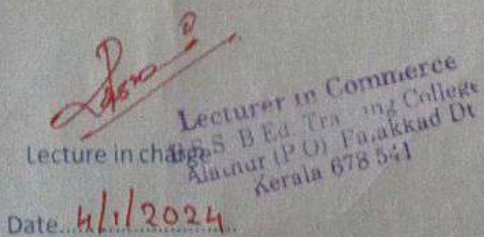 Lecturer in Commerce
S B Ed. Training College
Alathur (P O) Palakkad Dt
Kerala 678 541
Lecture in charge
Date..4/1/2024